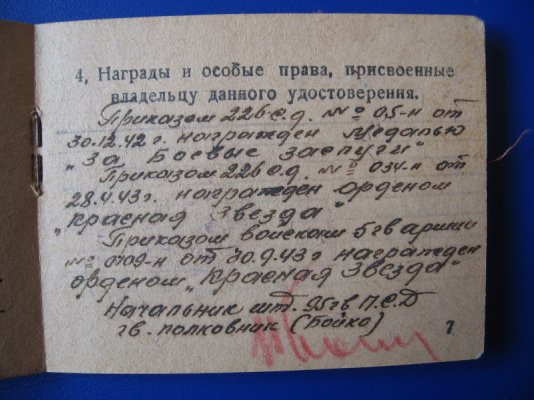 4. Награды и особые права, присвоенные
владельцу данного удостоверения.
Приказом 226 с.д. № 05-н от
30.12.42 г. награжден медалью
"За Боевые заслуги"
Приказом 226 с.д. № 034-н от
28.4.43 г. награжден орденом
"Красная Звезда"
Приказом войскам 5 гв армии
№ 0109-н от 30.9.43 г награжден
орденом "Красная Звезда"
Начальник шт. 95 гв П.С.Д
гв. полковник (Бойко)
7